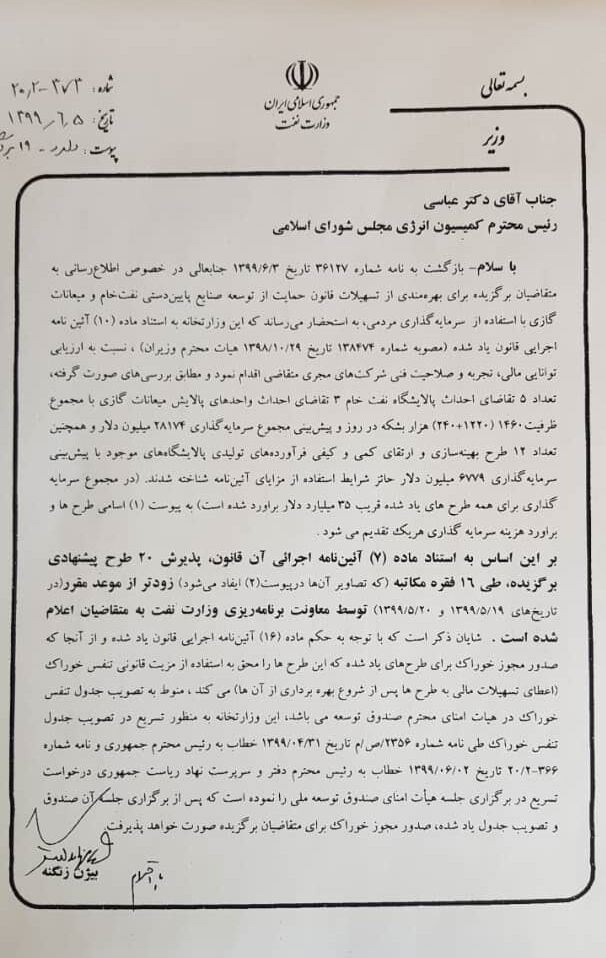 بسمه تعالی
جمهوری اسلامی ایران
وزارت نفت
وزیر
شماره: ۲۰/۲-۳۷۳
تاریخ: ۱۳۹۹/۶/۵
پیوست: دارد - ۱۹
جناب آقای دکتر عباسی
رئیس محترم کمیسیون انرژی مجلس شورای اسلامی
با سلام- بازگشت به نامه شماره ۳۶۱۲۷ تاریخ ۱۳۹۹/۶/۳ جنابعالی در خصوص اطلاع‌رسانی به
متقاضیان برگزیده برای بهره‌مندی از تسهیلات قانون حمایت از توسعه صنایع پایین‌دستی نفت‌خام و میعانات
گازی با استفاده از سرمایه‌گذاری مردمی، به استحضار می‌رساند که این وزارتخانه به استناد ماده (۱۰) آئین نامه
اجرایی قانون یاد شده (مصوبه شماره ۱۳۸۴۷۴ تاریخ ۱۳۹۸/۱۰/۲۹ هیات محترم وزیران) ، نسبت به ارزیابی
توانایی مالی، تجربه و صلاحیت فنی شرکت‌های مجری متقاضی اقدام نمود و مطابق بررسی‌های صورت گرفته،
تعداد ۵ تقاضای احداث پالایشگاه نفت خام ۳ تقاضای احداث واحدهای پالایش میعانات گازی با مجموع
ظرفیت ۱۴۶۰ (۱۲۲۰+۲۴۰) هزار بشکه در روز و پیش‌بینی مجموع سرمایه‌گذاری ۲۸۱۷۴ میلیون دلار و همچنین
تعداد ۱۲ طرح بهینه‌سازی و ارتقای کمی و کیفی فرآورده‌های تولیدی پالایشگاه‌های موجود با پیش‌بینی
سرمایه‌گذاری ۶۷۷۹ میلیون دلار حائز شرایط استفاده از مزایای آئین‌نامه شناخته شدند. (در مجموع سرمایه
گذاری برای همه طرح های یاد شده قریب ۳۵ میلیارد دلار براورد شده است) به پیوست (۱) اسامی طرح ها و
براورد هزینه سرمایه گذاری هریک تقدیم می شود .
بر این اساس به استناد ماده (۷) آئین‌نامه اجرائی آن قانون، پذیرش ۲۰ طرح پیشنهادی
برگزیده، طی ۱۶ فقره مکاتبه (که تصاویر آن‌ها درپیوست(۲) ایفاد می‌شود) زودتر از موعد مقرر(در
تاریخ‌های ۱۳۹۹/۵/۱۹ و ۱۳۹۹/۵/۲۰) توسط معاونت برنامه‌ریزی وزارت نفت به متقاضیان اعلام
شده است . شایان ذکر است که با توجه به حکم ماده (۱۶) آئین‌نامه اجرایی قانون یاد شده و از آنجا که
صدور مجوز خوراک برای طرح‌های یاد شده که این طرح ها را محق به استفاده از مزیت قانونی تنفس خوراک
(اعطای تسهیلات مالی به طرح ها پس از شروع بهره برداری از آن ها) می کند ، منوط به تصویب جدول تنفس
خوراک در هیات امنای محترم صندوق توسعه می باشد، این وزارتخانه به منظور تسریع در تصویب جدول
تنفس خوراک طی نامه شماره ۲۳۵۶/ص/م تاریخ ۱۳۹۹/۰۴/۳۱ خطاب به رئیس محترم جمهوری و نامه شماره
۲۰/۲-۳۶۶ تاریخ ۱۳۹۹/۰۶/۰۲ خطاب به رئیس محترم دفتر و سرپرست نهاد ریاست جمهوری درخواست
تسریع در برگزاری جلسه هیأت امنای صندوق توسعه ملی را نموده است که پس از برگزاری جلسه آن صندوق
و تصویب جدول یاد شده، صدور مجوز خوراک برای متقاضیان برگزیده صورت خواهد پذیرفت.
با احترام
بیژن زنگنه